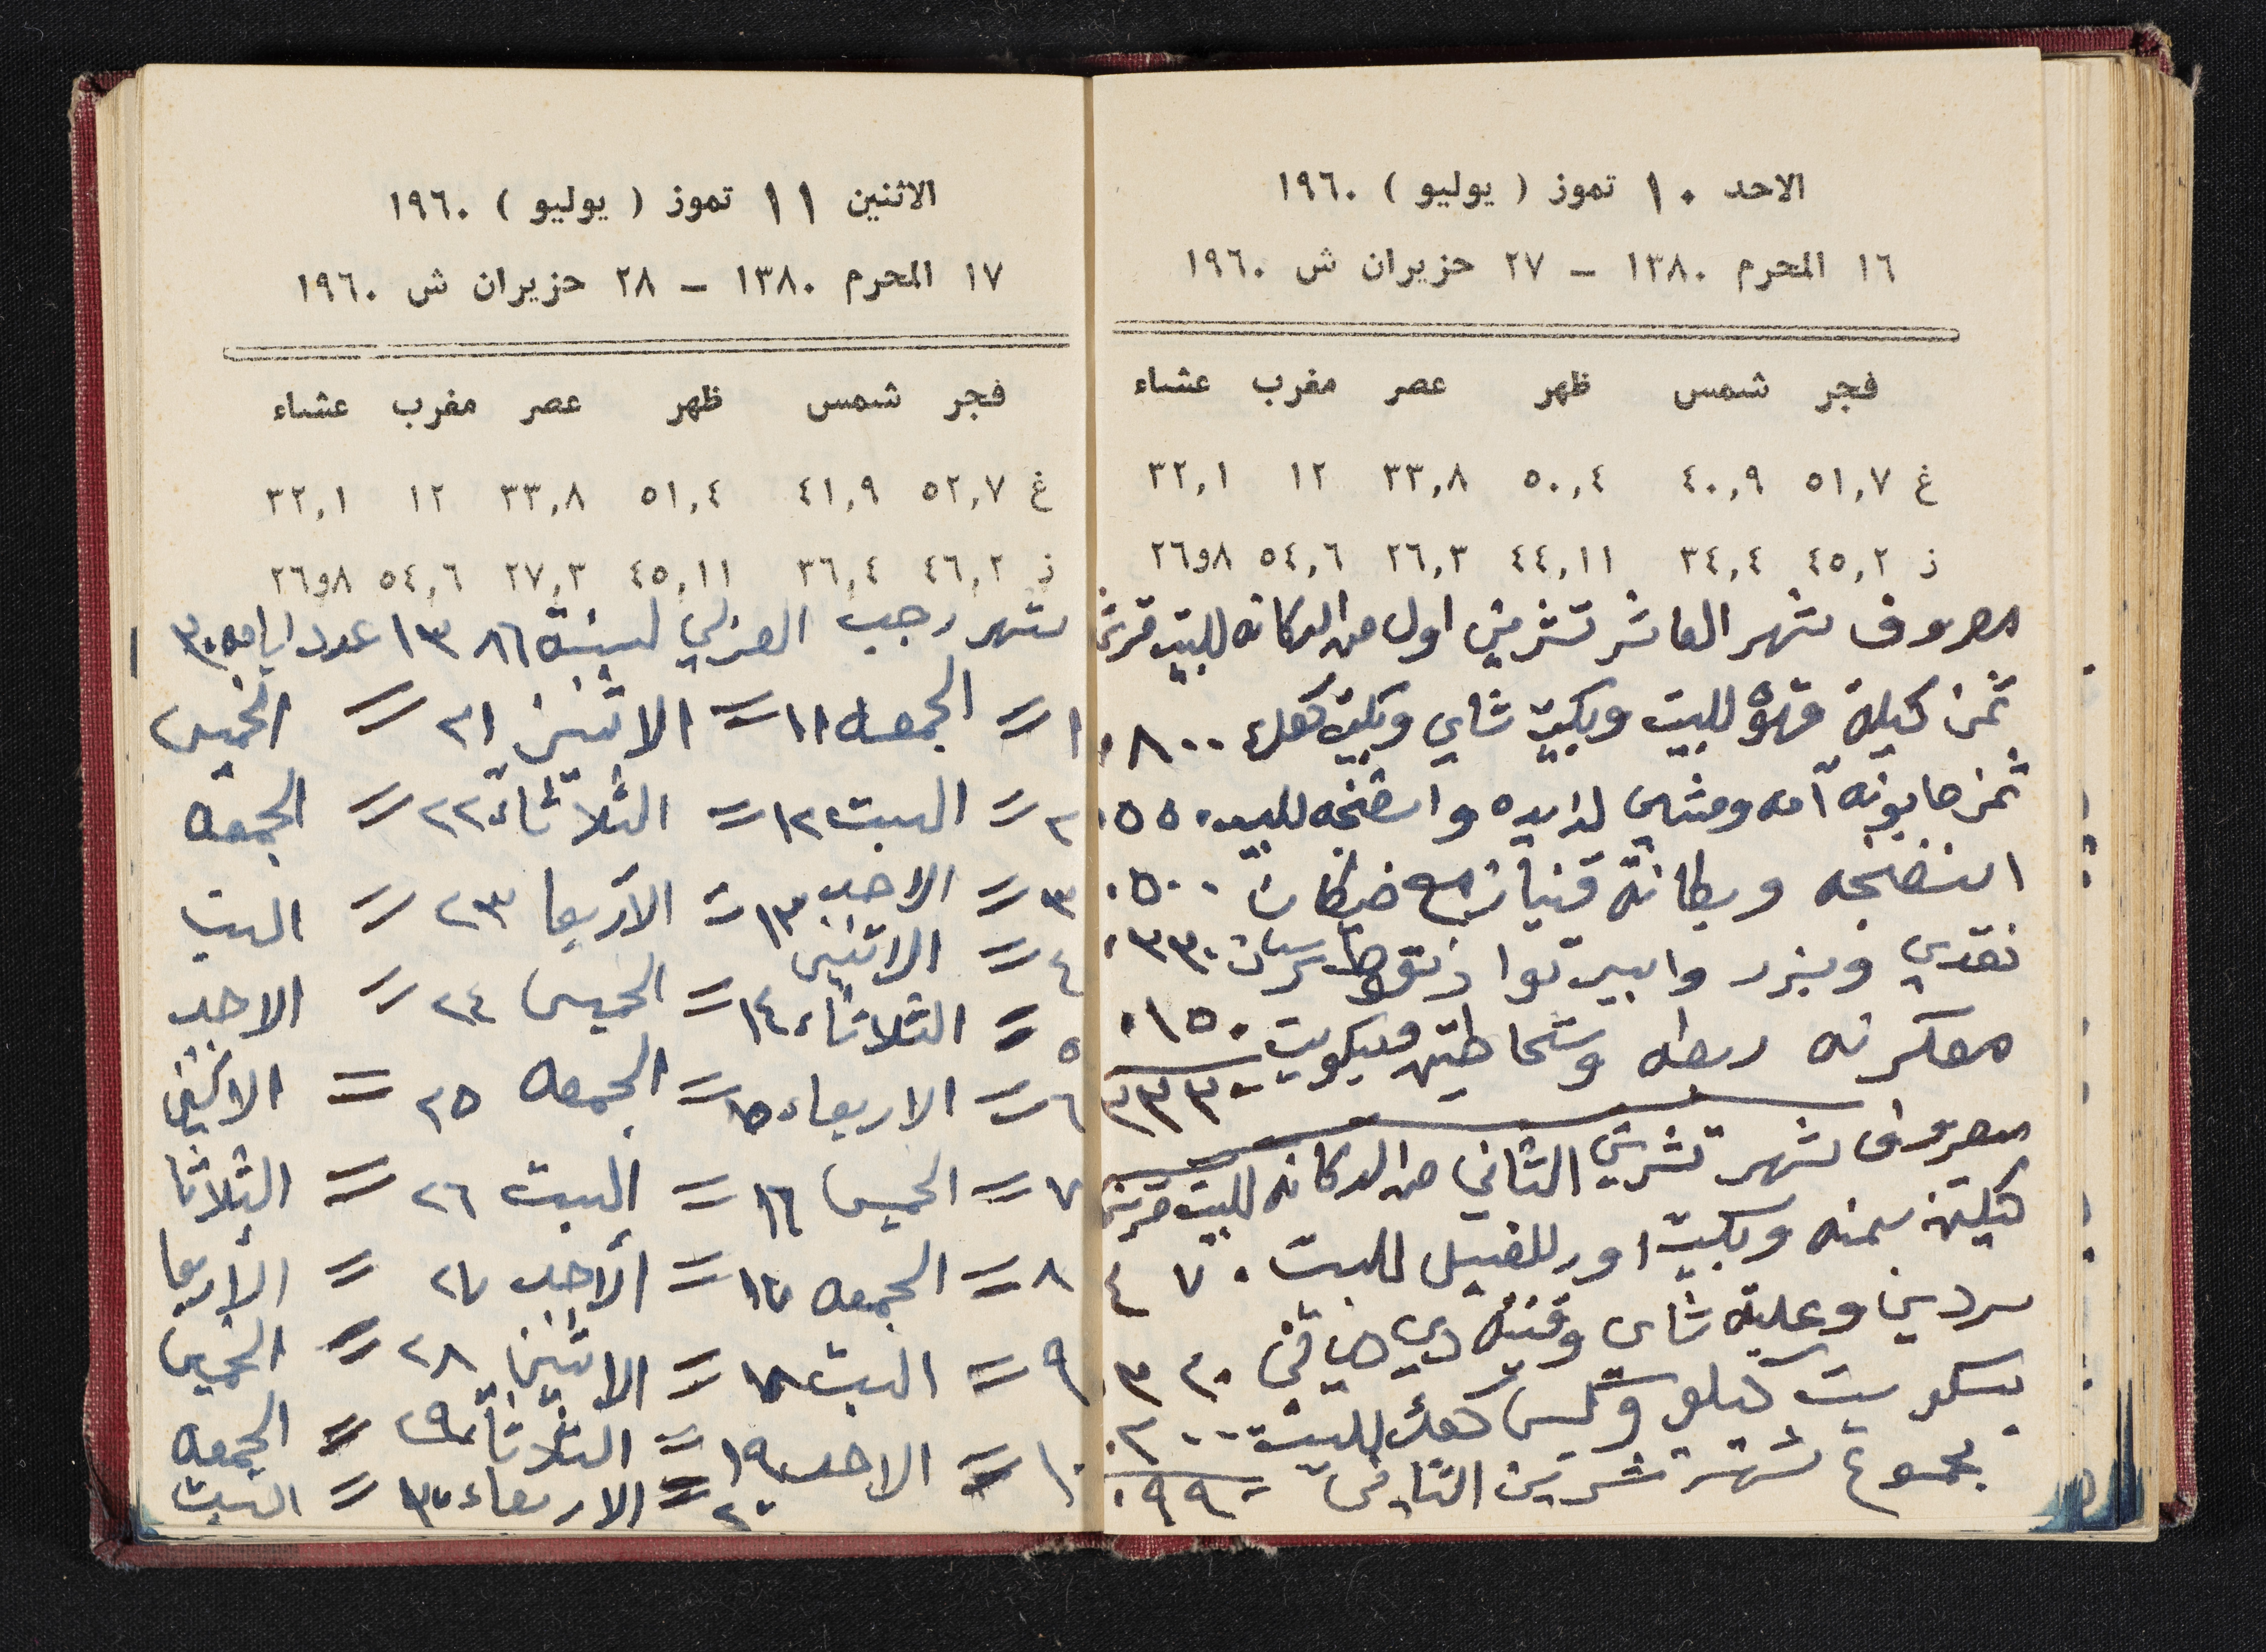 الاحد ١٠ تموز ( يوليو ) ١٩٦٠
١٦ المحرم ١٣٨٠ – ٢٧ حزيران ش ١٩٦٠
فجر شمس ظهر عصر مغرب عشاء
غ ٥١,٧ ٤٠,٩ ٥٠,٤ ٣٣,٨ ١٢ ٣٢,١
ز ٤٥,٢ ٣٤,٤ ٤٤,١١ ٢٦,٣ ٥٤,٦ ٨و٢٦
مصروف شهر العاشر تشرين اول من الدكانه للبيت قرش
ثمن كيلة قهوة للبيت وبكيت شاي وبكيت كعك ٨٠٠
ثمن صابونه ومشاي لذايده واسفنجه للبيت ٥٥٠
اسفنجه وبطانة مع ٥٠٠
نقدي وبزر واسبرتوا ٣٣٠
معكرونه ربطه وشحاطتين وبسكويت ١٥٠
٢٣٣٠
مصروف شهر تشرين الثاني من الدكانه للبيت قرش
كيلتين سمنه وبكيت اور للغسيل للبيت ٤٧٠
سردين وعلبة شاي وقنينة دي ٣٢٠
بسكويت كيلو وكيس كعك للبيت ٢٠٠
مجموع شهر تشرين الثاني = ٩٩٠
الاثنين ١١ تموز ( يوليو ) ١٩٦٠
١٧ المحرم ١٣٨٠ – ٢٨ حزيران ش ١٩٦٠
فجر شمس ظهر عصر مغرب عشاء
غ ٥٢,٧ ٤١,٩ ٥١,٤ ٣٣,٨ ١٢ ٣٢,١
ز ٤٦,٢ ٣٦,٤ ٤٥,١١ ٢٧,٣ ٥٤,٦ ٨و٢٦
شهر رجب لسنة ١٣٨٦ عدد ايامه ٣٠
١ = الجمعه ١١ = الاثنين ٢١ = الخميس
٢ = السبت ١٢ = الثلاثاء ٢٢ = الجمعه
٣ = الاحد ١٣ = الاربعا ٢٣ = السبت
٤ = الاثنين
٥ = الثلاثاء ١٤ = الخميس ٢٤ = الاحد
٦ = الاربعاء ١٥ = الجمعه ٢٥ = الاثنين
٧ = الخميس ١٦ = السبت ٢٦ = الثلاثا
٨ = الجمعه ١٧ = الاحد ٢٧ = الاربعا
٩ = السبت ١٨ = الاثنين ٢٨ = الخميس
١٠ = الاحد ١٩ = الثلاثاء ٢٩ = الجمعه
٢٠ = الاربعاء ٣٠ = السبت